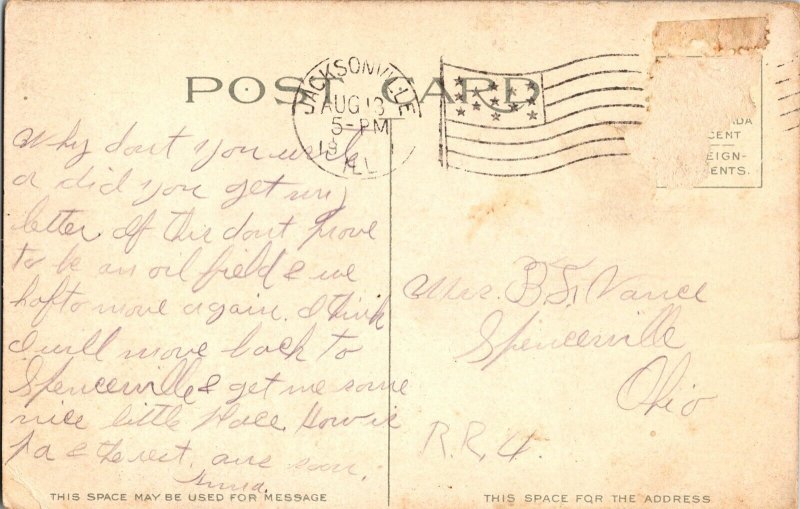 POST CARD
JACKSONVILLE
AUG 13
5-PM
19
ILL
ADA
CENT
EIGN-
ENTS.
Why dont you write
or did you get my
letter. If this dont prove
to be an oil field & we
hafto move again. I think
I will move back to
Spencerville & get me some
nice little place. How is
pa & the rest. ans soon.
Mrs. B. F. Vance
Spencerville
Ohio
R.R. 4.
THIS SPACE MAY BE USED FOR MESSAGE
THIS SPACE FOR THE ADDRESS